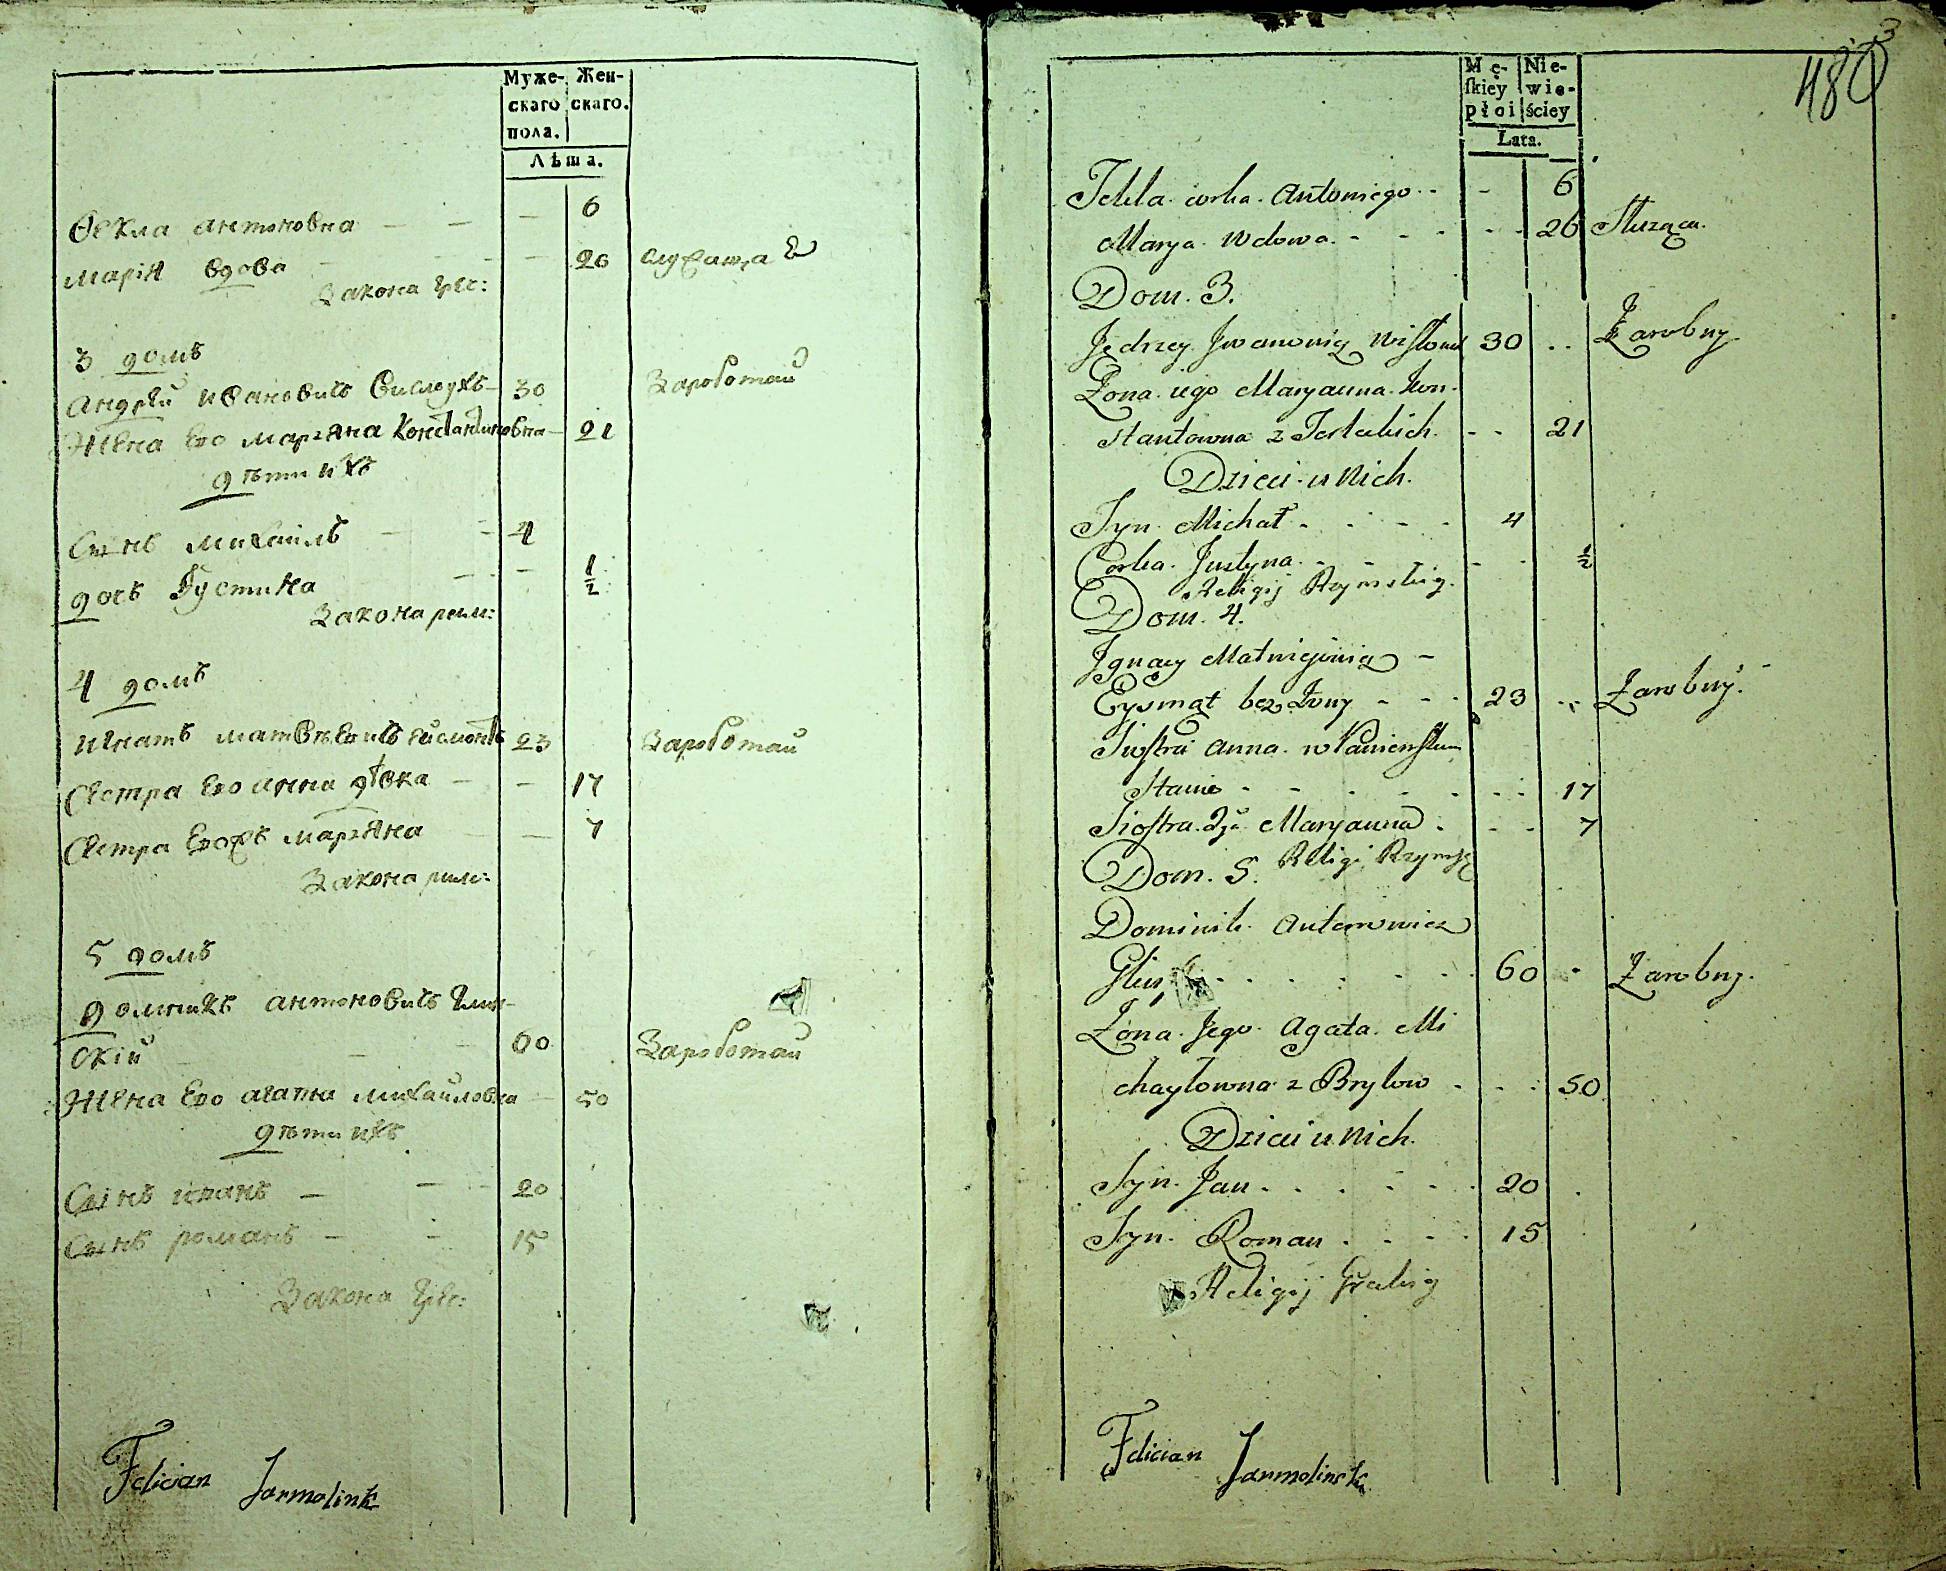 Муже- Жен-
скаго скаго.
пола.
Лѣта.
Ѳекла антоновна — — — 6
марія вдова — — 26 служаща
Закона грес:
3 домъ
андрѣй ивановичъ вислоухъ 30 Зароботай
жена его марꙗна Константиновна 21
дѣти ихъ
Сынъ михаилъ — — 4
дочь Густина — — ½
Закона рим:
4 домъ
игнатъ матвѣевичъ Ейсмонтъ 23 Зароботай
Сестра его анна дѣвка — — 17
Сестра марꙗна — — 7
Закона рим:
5 домъ
доминикъ антоновичъ Глин-
скій — — 60 Зароботай
жена его агапа михайловна — 50
дѣти ихъ
Сынъ иванъ — — 20
Сынъ романъ — — 15
Закона грес:
Felician Jarmolinsk
3
480
Mę- Nie-
ſkiey wie-
płoi ściey
Lata.
Tekla corka Antoniego - - - 6
Marya Wdowa - - - - 26 Służąca.
Dom. 3.
Jędrzey Jwanowicz Wisłouch 30 .. Zarobny
Zona iego Maryanna Kon-
stantowna z - - 21
Dzieci u Nich.
Syn Michał - - - - 4
Corka Justyna - - - - ½
Religij Rzymskiey.
Dom. 4.
Jgnacy Matwiejewicz -
Eysmąt bez Żony - - - 23 .. Zarobny.
Siostra Anna w Panienskim
Stanie - - - - - 17
Siostra 2ga Maryanna - - - 7
Dom. 5. Religi Rzymsk
Dominik Antonowicz
- - - - - 60 - Zarobny.
Zona Jego Agata Mi
chayłowna z Brylow - - - 50
Dzieci u Nich.
Syn Jan - - - - - 20
Syn Roman - - - - 15
Religij Grekiey
Felician Jarmolinsk